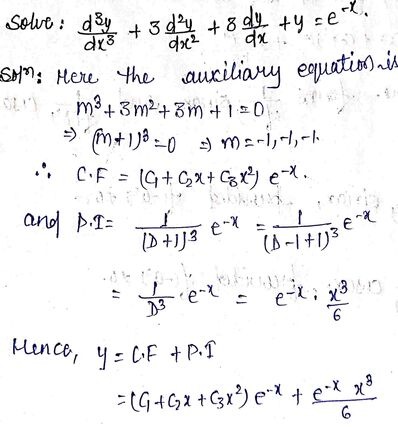 Solve: d³y/dx³ + 3 d²y/dx² + 8 dy/dx + y = e⁻ˣ.
Solⁿ: Here the auxiliary equation is
m³ + 3m² + 3m + 1 = 0
⇒ (m+1)³ = 0 ⇒ m = -1, -1, -1.
∴ C.F = (C₁ + C₂x + C₃x²) e⁻ˣ.
and P.I = 1/(D+1)³ e⁻ˣ = 1/(D-1+1)³ e⁻ˣ
= 1/D³ · e⁻ˣ = e⁻ˣ · x³/6
Hence, y = C.F + P.I
= (C₁ + C₂x + C₃x²) e⁻ˣ + e⁻ˣ x³/6